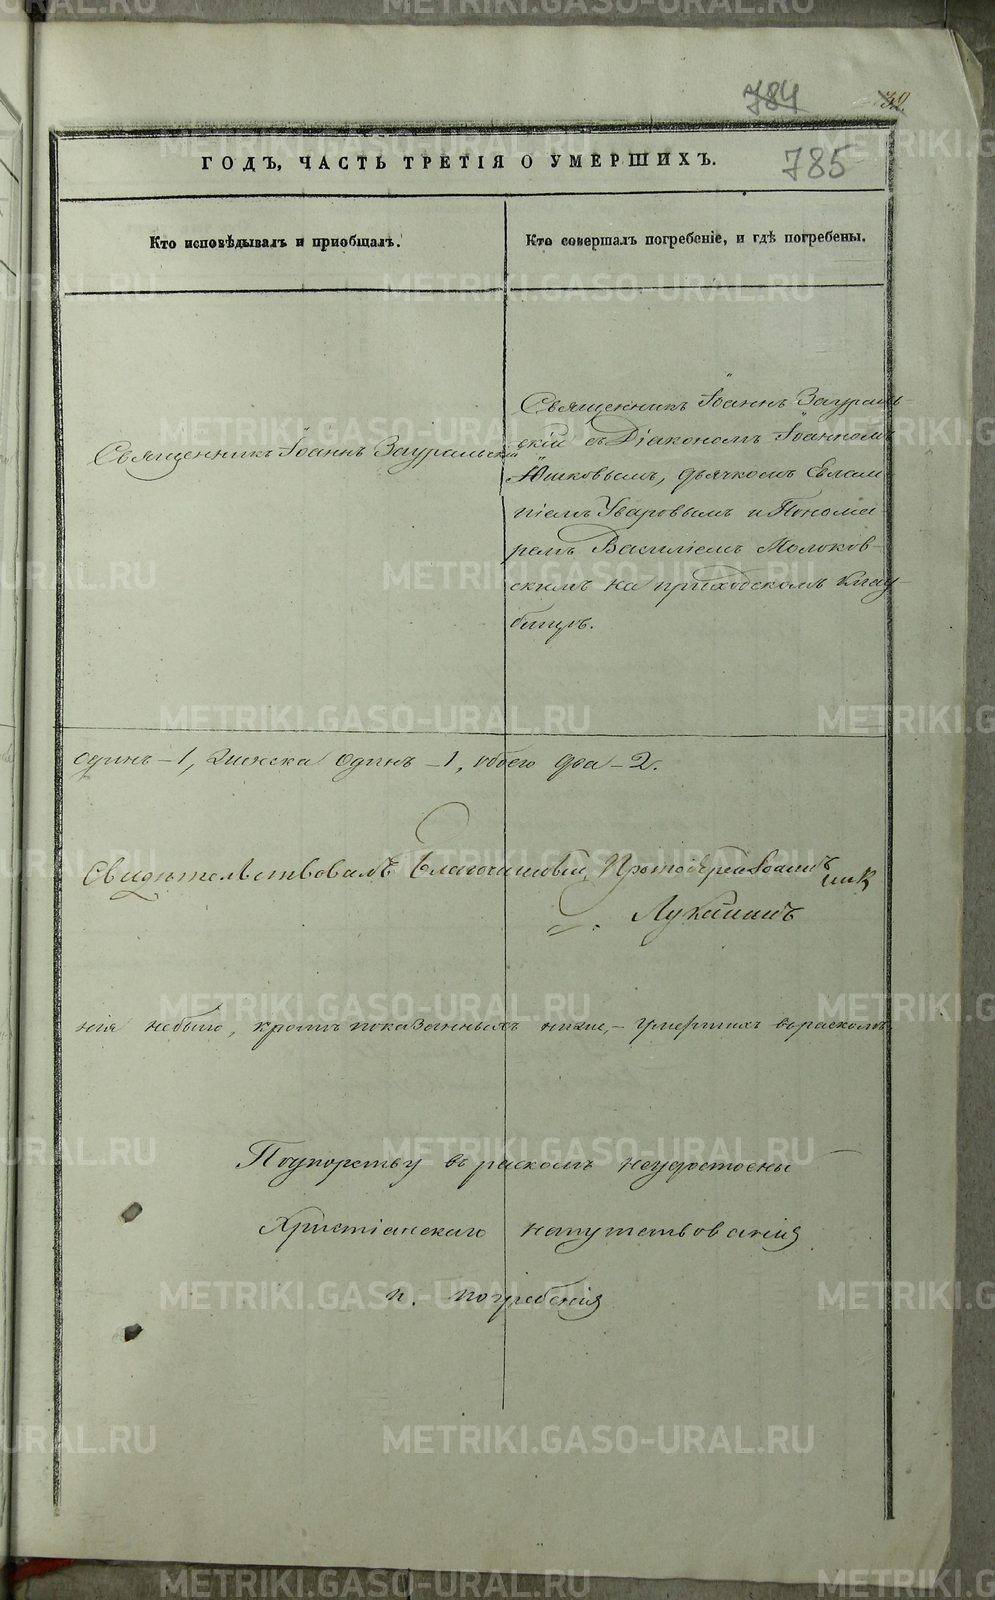 784
32.
ГОДЪ, ЧАСТЬ ТРЕТІЯ О УМЕРШИХЪ.
785
Кто исповѣдывалъ и пріобщалъ.
Кто совершалъ погребеніе, и гдѣ погребены.
Священникъ Іоаннъ Зауральскій
Священникъ Іоаннъ Заураль-
скій съ Діакономъ Іоанномъ
Юшковымъ, дьячкомъ Евлам-
піемъ Уваровымъ и Понома-
ремъ Василіемъ Молоков-
скимъ на приходскомъ клад-
бищѣ.
одинъ – 1, женска одинъ – 1, обоего два – 2.
Свидѣтельствовалъ Благочинный, Протоіерей Іоаннъ
Лукинъ
нія небыло, кромѣ показанныхъ ниже, – умершихъ въ расколѣ,
По упорству въ расколѣ неудостоены
Христіанскаго напутствованія
и погребенія
METRIKI.GASO-URAL.RU